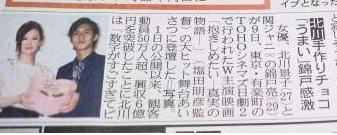 北川手作りチョコ
「うまい」錦戸感激
女優、北川景子(27)と
関ジャニ∞の錦戸亮(29)
が9日、東京・有楽町の
TOHOシネマズ日劇2
で行われたW主演映画
「抱きしめたい―真実の
物語―」(塩田明彦監
督)の大ヒット舞台あい
さつに登壇した=写真。
1日の公開以来、観客
動員50万人超、興収6億
円を突破したことに北川
は「数字がすごすぎてピ